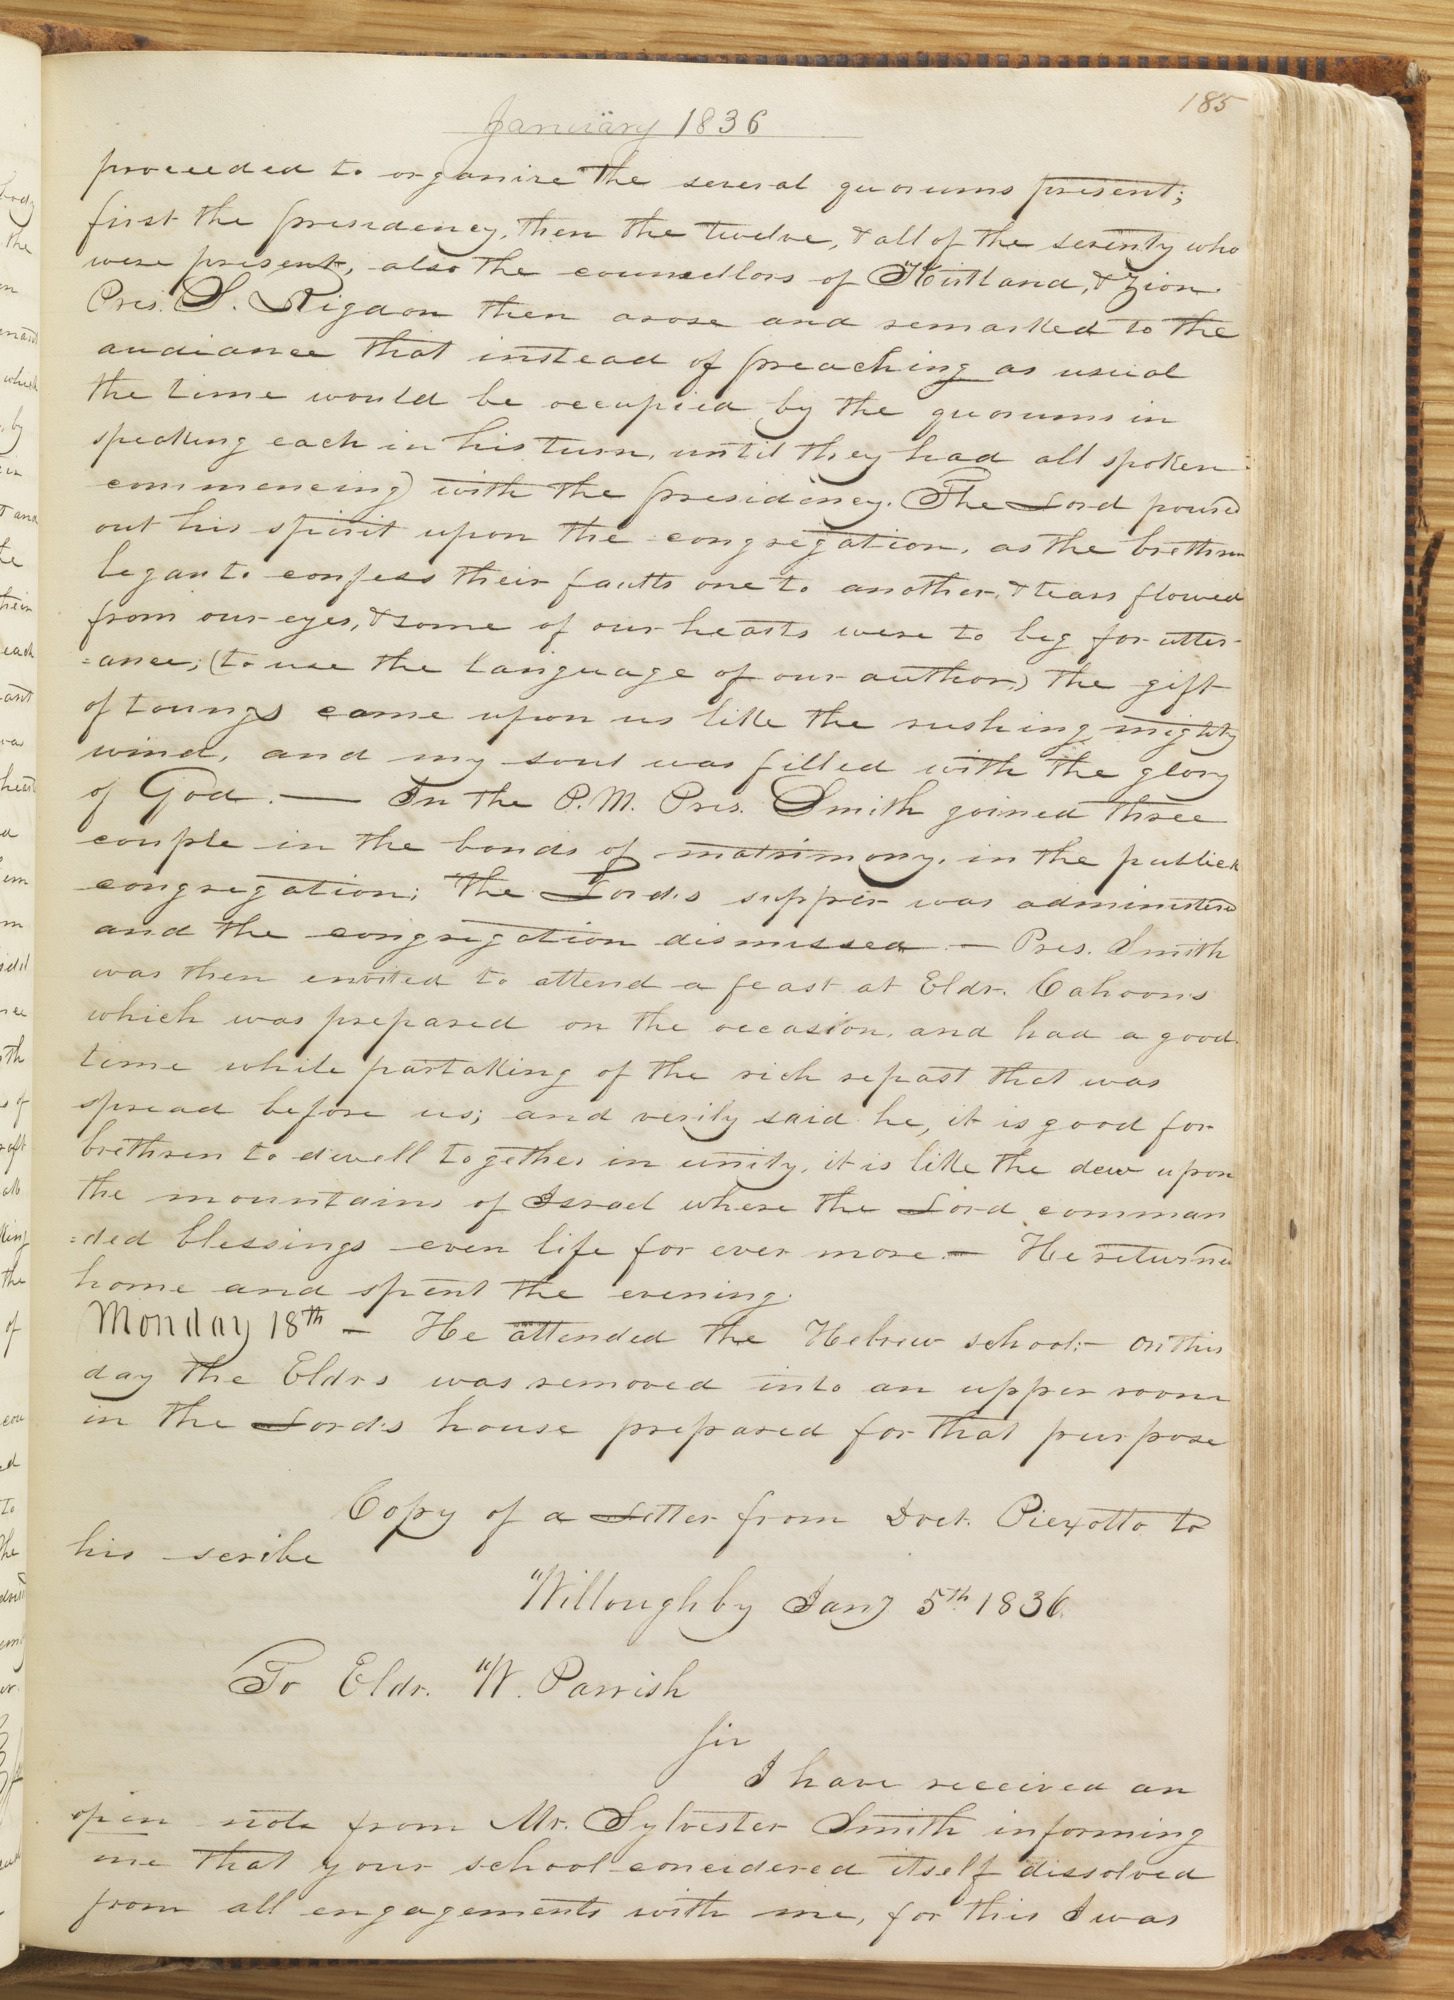 185
January 1836
proceeded to organize the several quorums present;
first the presidency, then the twelve, & all of the seventy who
were present, also the counsellors of Kirtland, & Zion.
Pres. S. Rigdon then arose and remarked to the
audiance that instead of preaching as usual
the time would be occupied by the quorums in
speaking each in his turn, until they had all spoken
commencing with the presidency. The Lord poured
out his spirit upon the congregation, as the brethren
began to confess their faults one to another, & tears flowed
from our eyes, & some of our hearts were to big for utter-
=ance; (to use the language of our author,) the gift
of toungs came upon us like the rushing mighty
wind, and my soul was filled with the glory
of God. — In the P.M. Pres. Smith joined three
couple in the bonds of matrimony, in the publick
congregation; the Lord's supper was administered
and the congregation dismissed. — Pres. Smith
was then invited to attend a feast at Eldr. Cahoons
which was prepared on the occasion, and had a good
time while partaking of the rich repast that was
spread before us; and verily said he, it is good for
brethren to dwell together in unity, it is like the dew upon
the mountains of Israel where the Lord comman
=ded blessings even life for ever more — He returned
home and spent the evening.
Monday 18th — He attended the Hebrew school:— On this
day the Eldrs was removed into an upper room
in the Lord's house prepared for that purpose
Copy of a Letter from Doct. Piexotto to
his scribe
Willoughby Jany 5th 1836.
To Eldr. W. Parrish
Sir
I have received an
open note from Mr. Sylvester Smith informing
me that your school concidered itself dissolved
from all engagements with me, for this I was